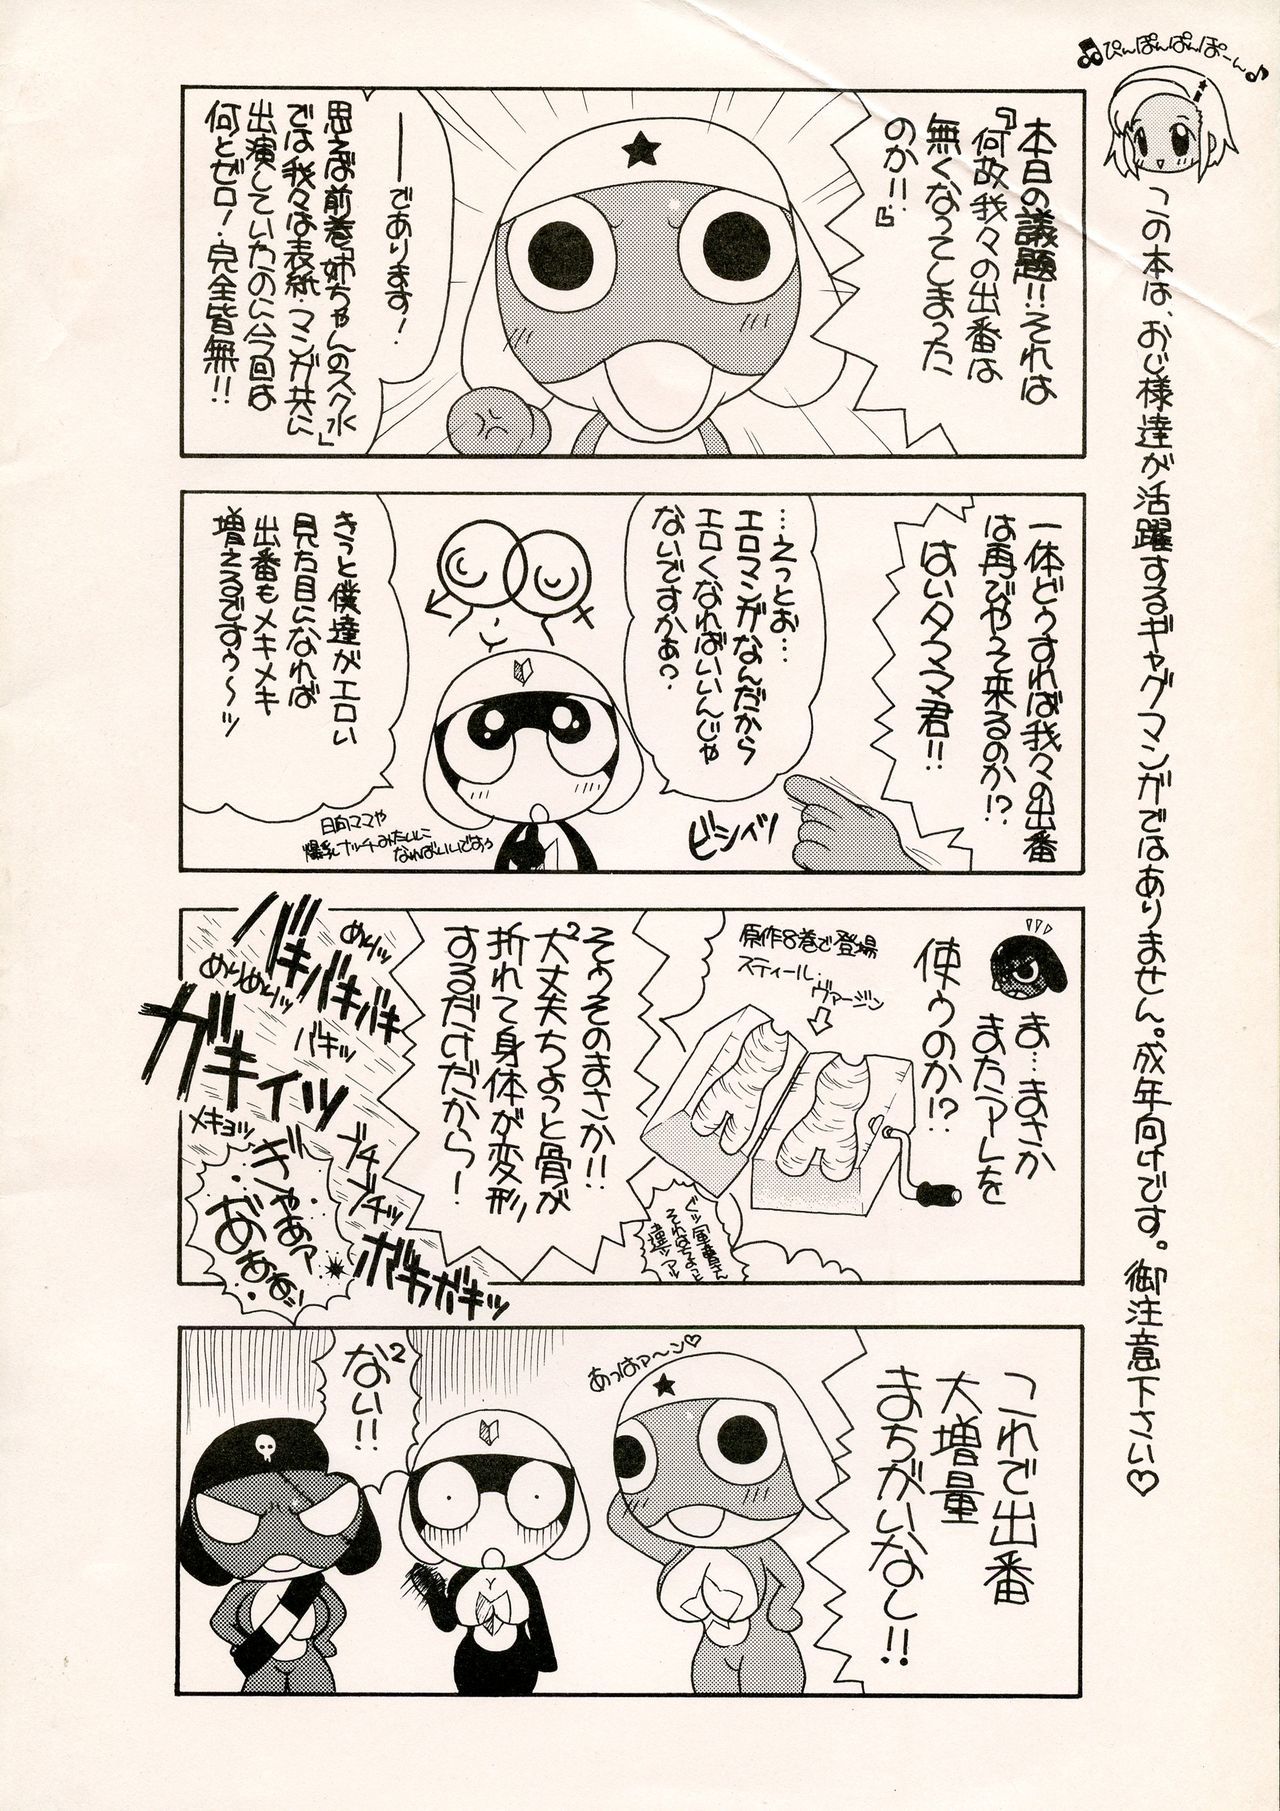 ♫ぴんぽんぱんぽーん♪
この本は、おじ様達が活躍するギャグマンガではありません。成年向けです。御注意下さい♡
本日の議題!!それは
『何故我々の出番は
無くなってしまった
のか!!』
――であります!
思えば前巻『姉ちゃんのスク水』
では我々は表紙・マンガ共に
出演していたのに今回は
何とゼロ!完全皆無!!
一体どうすれば我々の出番
は再びやって来るのか!?
はいタママ君!!
ビシィッ
…えっとぉ…
エロマンガなんだから
エロくなればいいんじゃ
ないですかぁ?
きっと僕達がエロい
見た目になれば
出番もメキメキ
増えるですぅ～ッ
日向ママや
爆乳ナッチーみたいに
なればいいですぅ
ま…まさか
またアレを
使うのか!?
原作8巻で登場
スティール・
ヴァージン
ぐッ軍曹さん
それはちょっと
違ッアッ
そぅそのまさか!!
大丈夫²ちょっと骨が
折れて身体が変形
するだけだから!
めりッ
バキバキバキ
めりめりッ
バキッ
ガキィッ
メキョッ
ブチ
ブチッ
ぎゃあァ
あぁぁ!!
ボキボキッ
これで出番
大増量
まちがいなし!!
あっはァ～ン♡
ない²!!